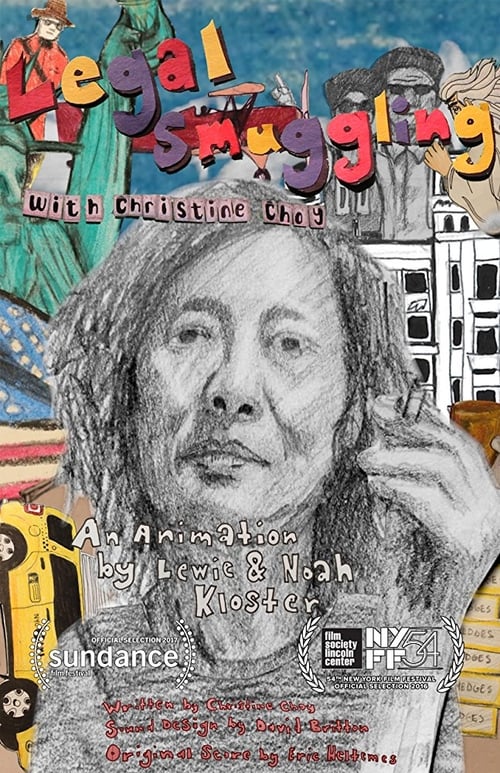 Legal
Smuggling
with Christine Choy
An Animation
by Lewie & Noah
Kloster
OFFICIAL SELECTION 2017
sundance
film festival
film
society
lincoln
center
NY
FF54
54TH NEW YORK FILM FESTIVAL
OFFICIAL SELECTION 2016
Written by Christine Choy
Sound Design by David Britton
Original Score by Eric Heltemes
EDGES
EDGES